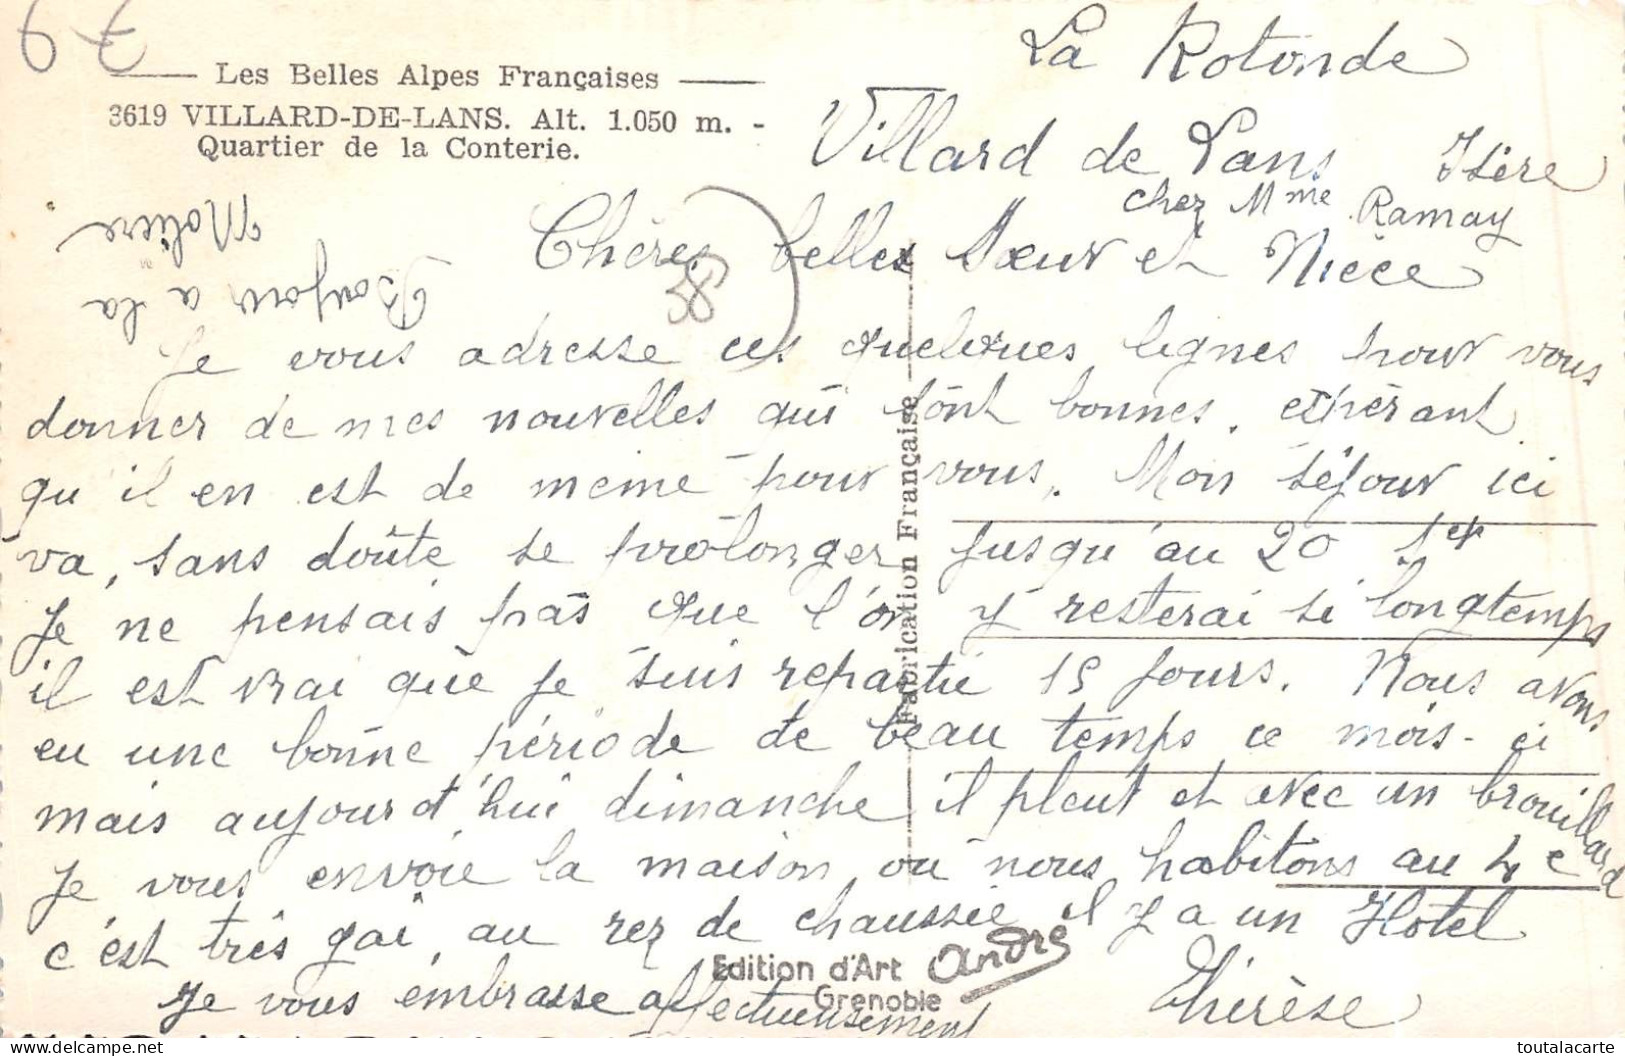 Les Belles Alpes Françaises
3619 VILLARD-DE-LANS. Alt. 1.050 m. -
Quartier de la Conterie.
La Rotonde
Villard de Lans Isère
chez Mme Ramay
Chères belles Sœur et Nièce
Je vous adresse ces quelques lignes pour vous
donner de mes nouvelles qui sont bonnes. espérant
qu'il en est de même pour vous. Mon séjour ici
va, sans doûte se prolonger jusqu'au 20 
Je ne pensais pas que l'on y resterai si longtemps
il est vrai que je suis repartie 15 jours. Nous avons
eu une bonne période de beau temps ce mois-ci
mais aujourd'hui dimanche il pleut et avec un brouillard
Je vous envoie la maison où nous habitons au 4e
c'est très gai, au rez de chaussée il y a un Hotel
Je vous embrasse affectueusement
Thérèse
Bonjour a la
Molière.
38
Fabrication Française
Edition d'Art André
Grenoble
toutalacarte